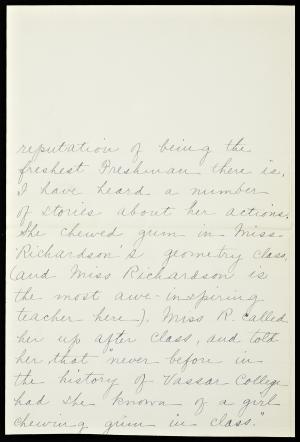 reputation of being the
freshest Freshman there is.
I have heard a number
of stories about her actions.
She chewed gum in Miss
Richardson's geometry class.
(and Miss Richardson is
the most awe-inspiring
teacher here). Miss R. called
her up after class, and told
her that "never before in
the history of Vassar College
had she known of a girl
chewing gum in class."